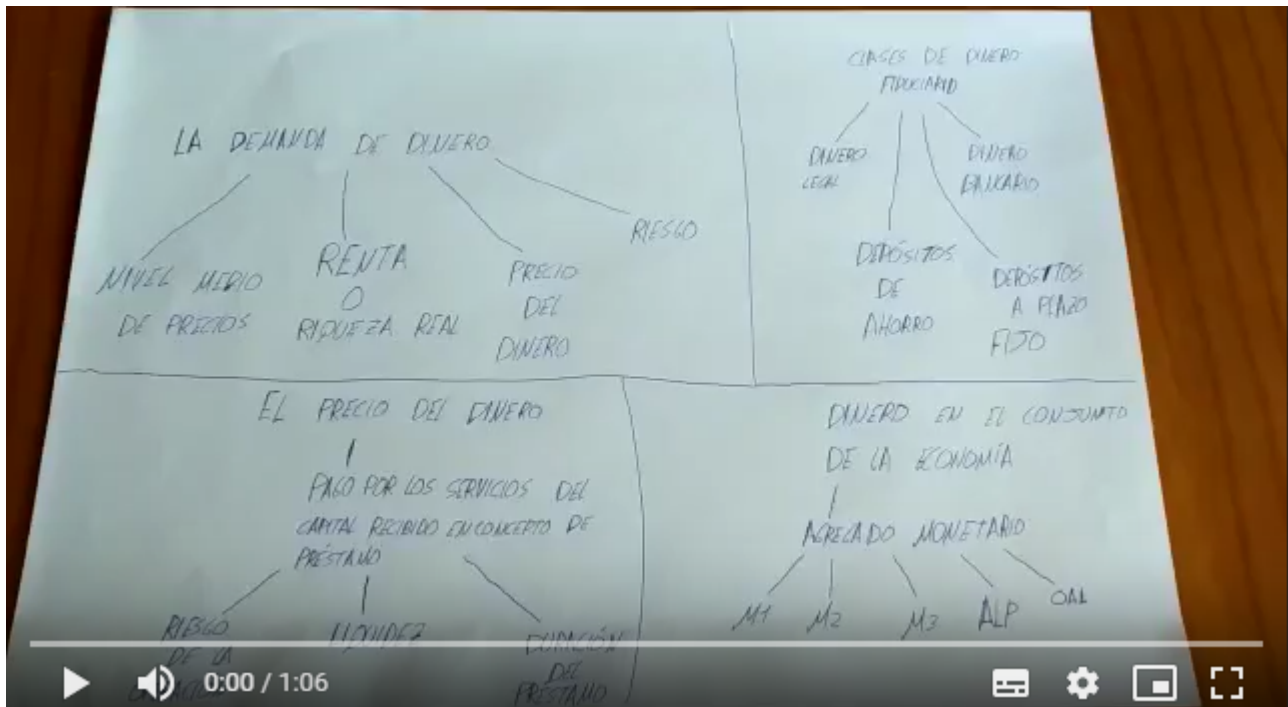 LA DEMANDA DE DINERO
NIVEL MEDIO
DE PRECIOS
RENTA
O
RIQUEZA REAL
PRECIO
DEL
DINERO
RIESGO
CLASES DE DINERO
FIDUCIARIO
DINERO
LEGAL
DEPÓSITOS
DE
AHORRO
DEPÓSITOS
A PLAZO
FIJO
DINERO
BANCARIO
EL PRECIO DEL DINERO
PAGO POR LOS SERVICIOS DEL
CAPITAL RECIBIDO EN CONCEPTO DE
PRÉSTAMO
RIESGO
DE LA
LIQUIDEZ
DURACIÓN
DEL
PRÉSTAMO
DINERO EN EL CONJUNTO
DE LA ECONOMÍA
AGREGADO MONETARIO
M1
M2
M3
ALP
OAL
0:00 / 1:06